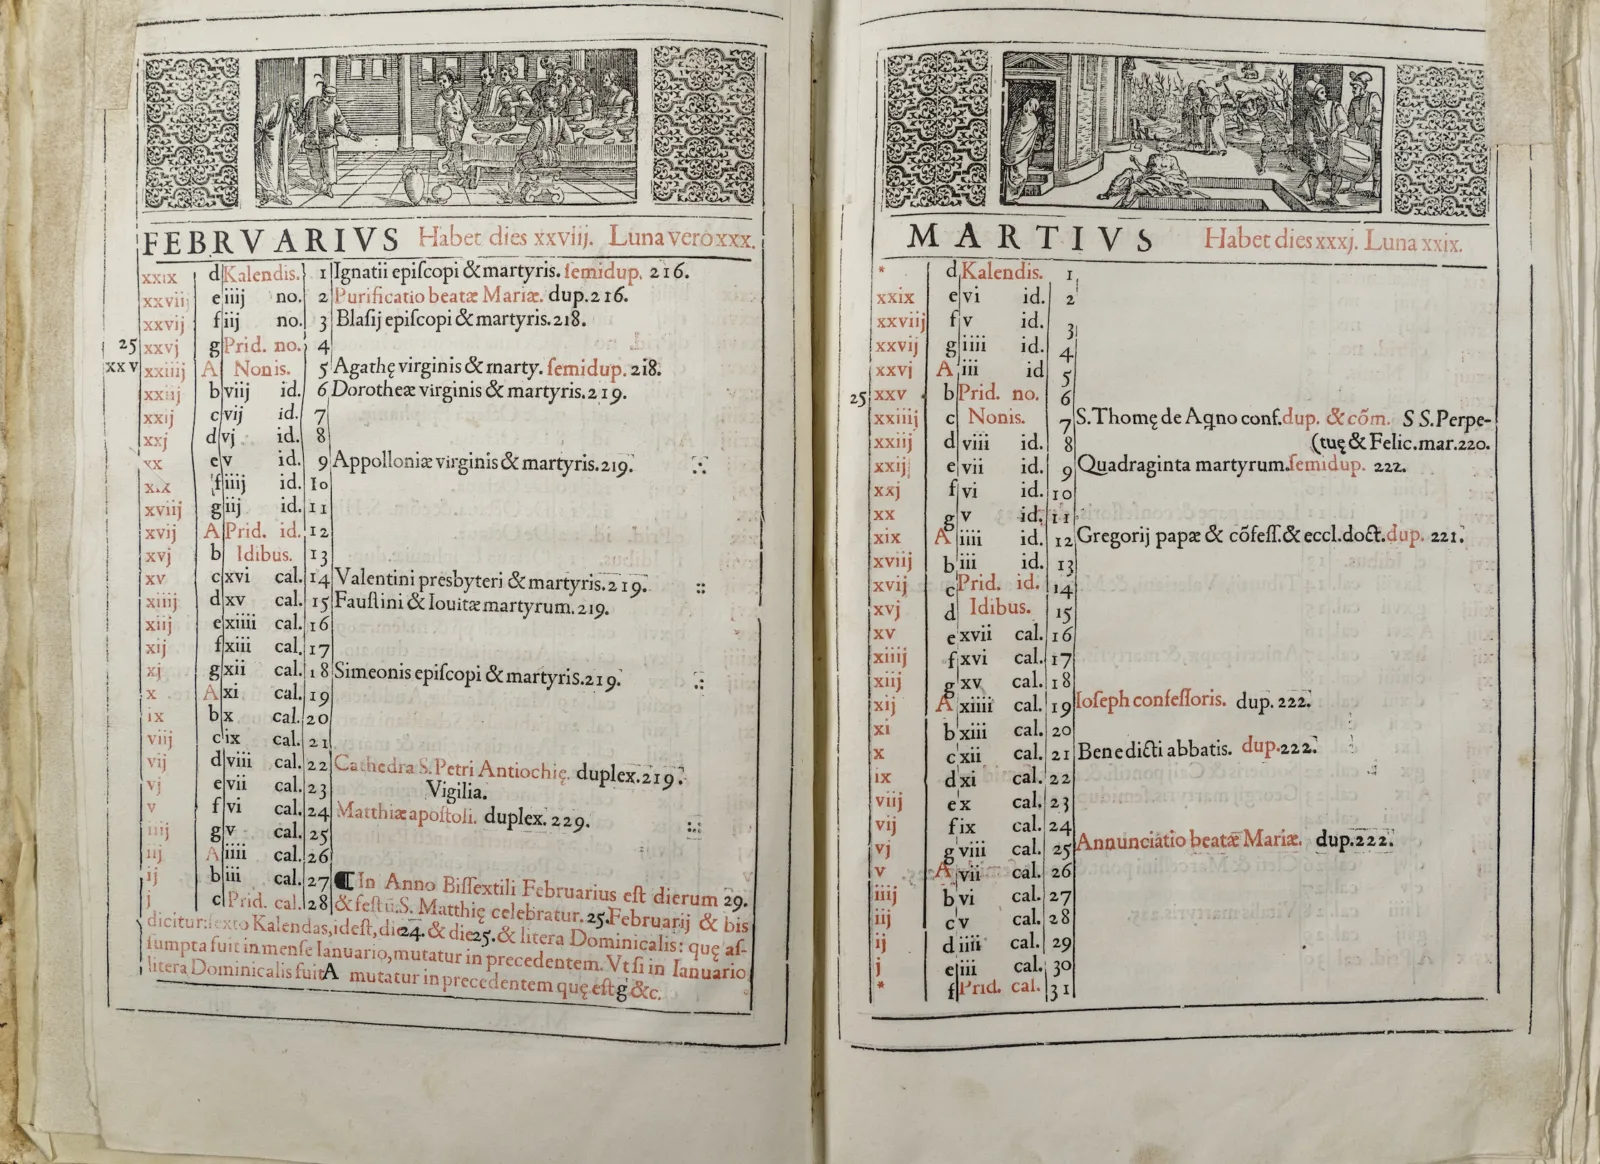 FEBRVARIVS Habet dies xxviij. Luna vero xxx.
xxix d Kalendis. 1 Ignatii epiſcopi & martyris. ſemidup. 216.
xxviij e iiij no. 2 Purificatio beatæ Mariæ. dup. 216.
xxvij f iij no. 3 Blaſij epiſcopi & martyris. 218.
25 xxvj g Prid. no. 4
xxv xxiiij A Nonis. 5 Agathę virginis & marty. ſemidup. 218.
xxiij b viij id. 6 Dorotheæ virginis & martyris. 219.
xxij c vij id. 7
xxj d vj id. 8
xx e v id. 9 Appolloniæ virginis & martyris. 219.
xix f iiij id. 10
xviij g iij id. 11
xvij A Prid. id. 12
xvj b Idibus. 13
xv c xvi cal. 14 Valentini presbyteri & martyris. 219.
xiiij d xv cal. 15 Fauſtini & Iouitæ martyrum. 219.
xiij e xiiii cal. 16
xij f xiii cal. 17
xj g xii cal. 18 Simeonis epiſcopi & martyris. 219.
x A xi cal. 19
ix b x cal. 20
viij c ix cal. 21
vij d viii cal. 22 Cathedra S. Petri Antiochię. duplex. 219.
vj e vii cal. 23 Vigilia.
v f vi cal. 24 Matthiæ apoſtoli. duplex. 229.
iiij g v cal. 25
iij A iiii cal. 26
ij b iii cal. 27 ¶ In Anno Biſſextili Februarius eſt dierum 29.
j c Prid. cal. 28 & feſtū S. Matthię celebratur. 25. Februarij & bis
dicitur: ſexto Kalendas, ideſt, die 24. & die 25. & litera Dominicalis: quę aſ-
ſumpta fuit in menſe Ianuario, mutatur in precedentem. Vt ſi in Ianuario
litera Dominicalis fuit A mutatur in precedentem quę eſt g &c.
MARTIVS Habet dies xxxj. Luna xxix.
* d Kalendis. 1
xxix e vi id. 2
xxviij f v id. 3
xxvij g iiii id. 4
xxvj A iii id 5
25 xxv b Prid. no. 6
xxiiij c Nonis. 7 S. Thomę de Aqno conf. dup. & cōm. S S. Perpe-
xxiij d viii id. 8 (tuę & Felic. mar. 220.
xxij e vii id. 9 Quadraginta martyrum. ſemidup. 222.
xxj f vi id. 10
xx g v id. 11
xix A iiii id. 12 Gregorij papæ & cōfeſſ. & eccl. doct. dup. 221.
xviij b iii id. 13
xvij c Prid. id. 14
xvj d Idibus. 15
xv e xvii cal. 16
xiiij f xvi cal. 17
xiij g xv cal. 18
xij A xiiii cal. 19 Ioſeph confeſſoris. dup. 222.
xi b xiii cal. 20
x c xii cal. 21 Benedicti abbatis. dup. 222.
ix d xi cal. 22
viij e x cal. 23
vij f ix cal. 24
vj g viii cal. 25 Annunciatio beatæ Mariæ. dup. 222.
v A vii cal. 26
iiij b vi cal. 27
iij c v cal. 28
ij d iiii cal. 29
j e iii cal. 30
* f Prid. cal. 31